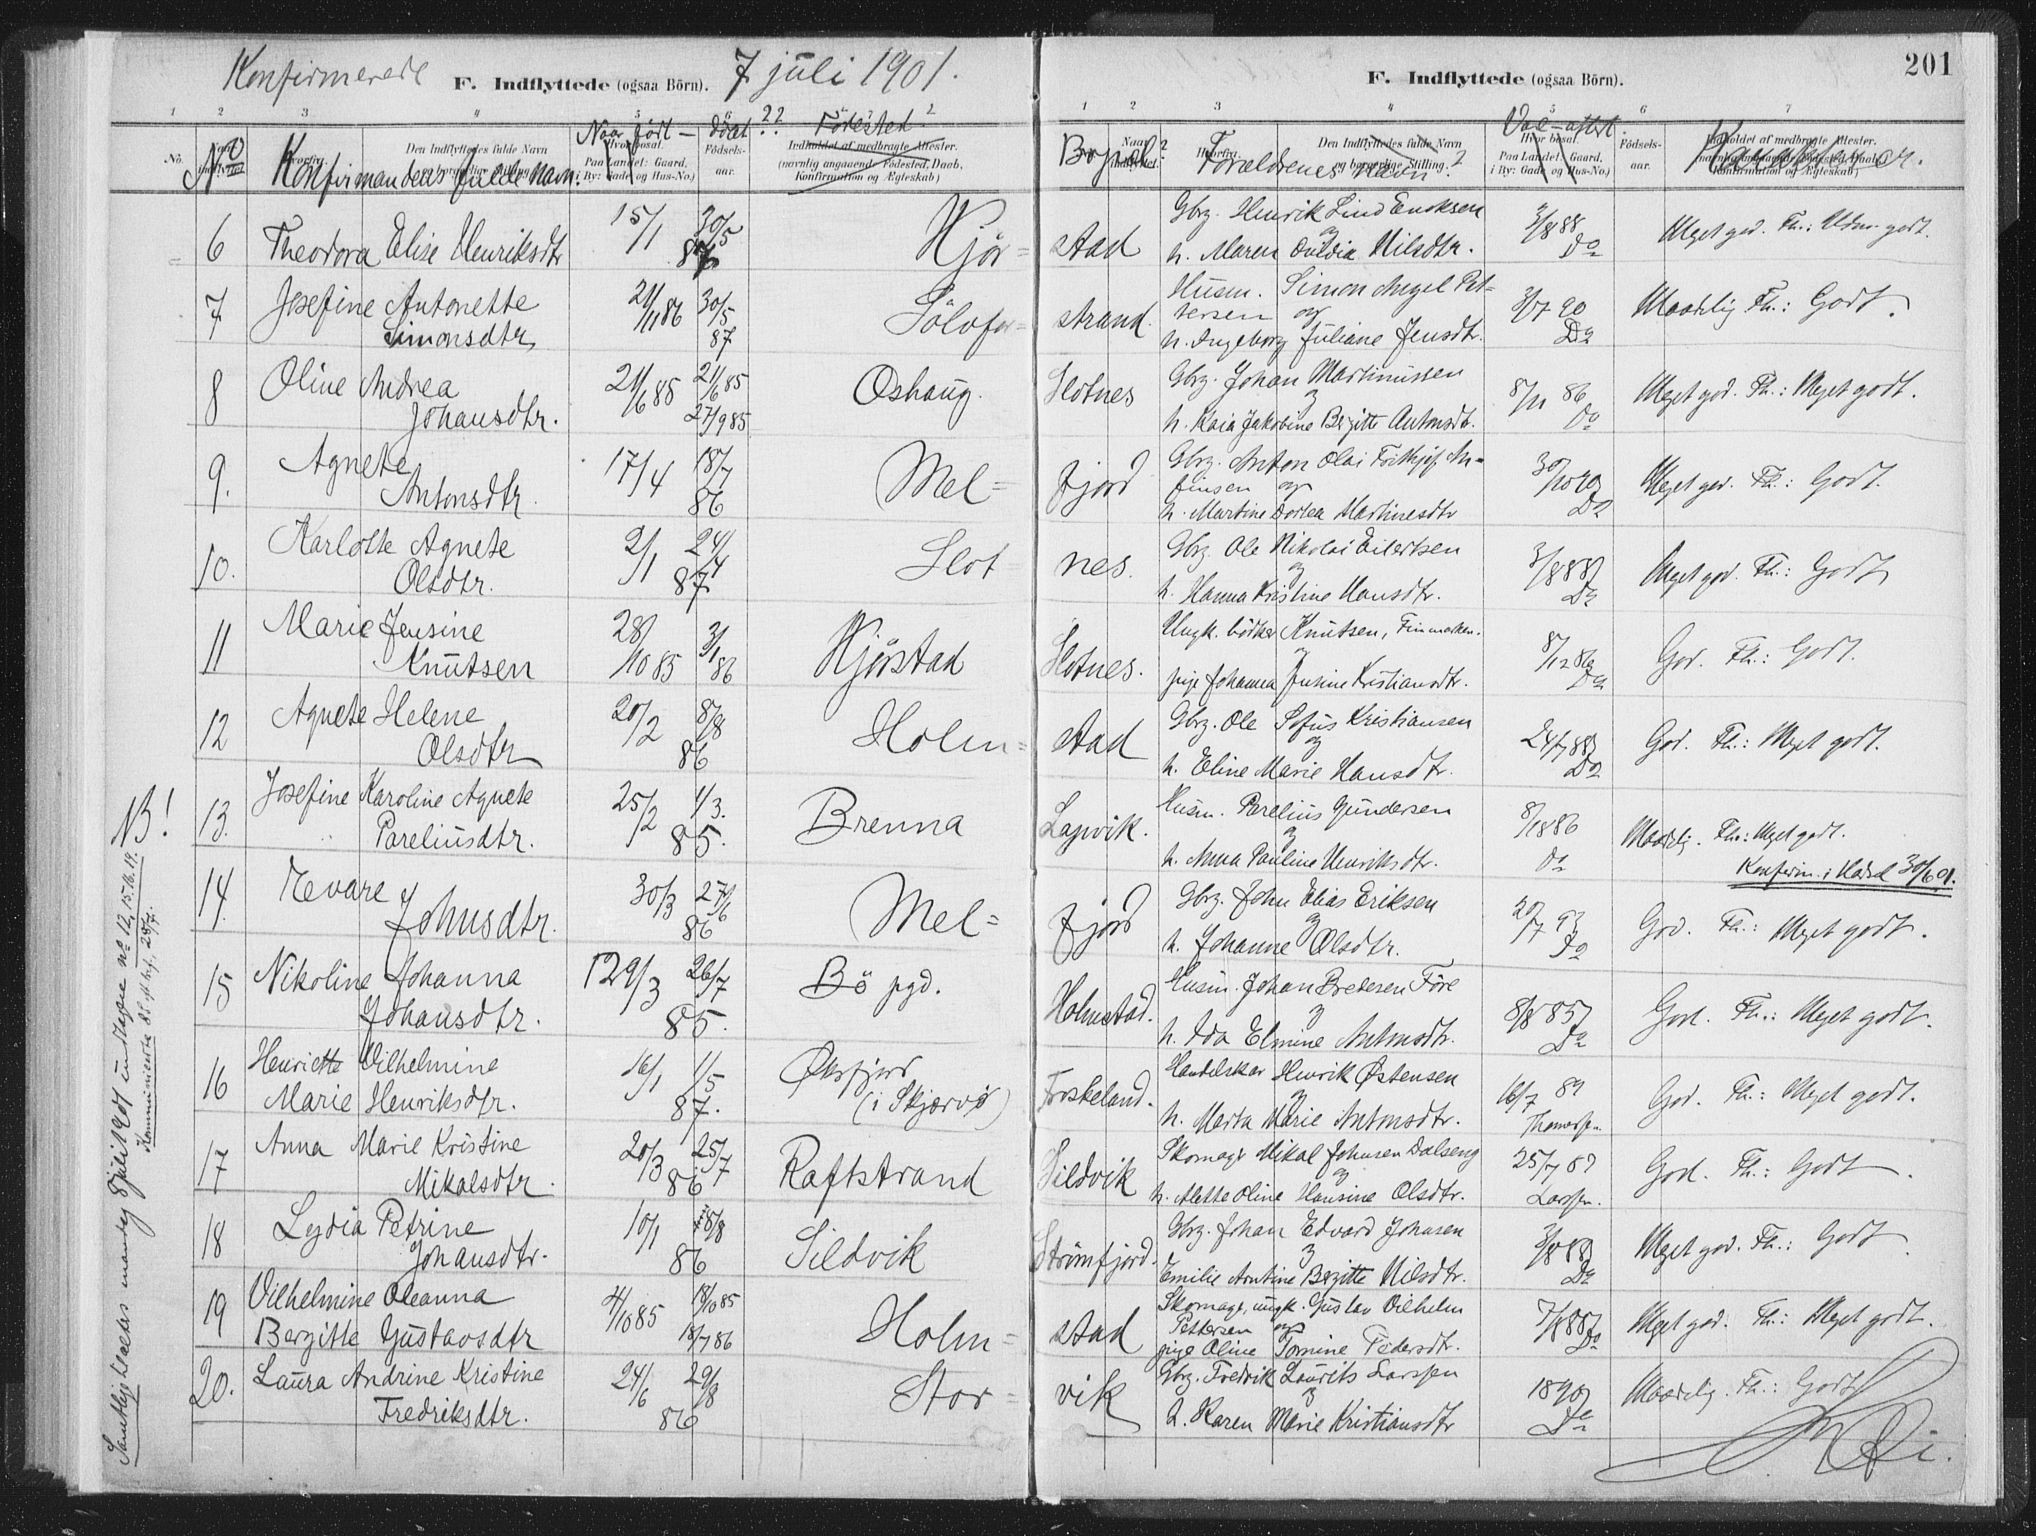 Konfirmerede 7 juli 1901.
F. Indflyttede (ogsaa Börn).
F. Indflyttede (ogsaa Börn).
201
1 2 3 4 5 6
1 2 3 4 5 6 7
No Konfirmandens fulde Navn. Naar født – döbt ?? Födested ?
Bopæl ? Forældrenes navn ? Vac-attest.
No. Den Indflyttedes fulde Navn Hvor bosat. Paa Landet: Gaard, i By: Gade og Hus-No.) Födsels-aar. Indholdet af medbragte Attester. (navnlig angaaend. Födested, Daab, Konfirmation og Ægteskab)
6 Theodora Elise Henriksdtr 15/1 30/5 87 Kjör=stad Gbrg. Henrik Lind Enoksen og h. Maren Nilsdtr. 3/8 88 Do Meget god. Fh.: Udm. godt.
7 Josefine Antonette Simonsdtr. 21/11 86 30/5 87 =strand. Husm. Simon Angel Pettersen og h. Ingeborg Juliane Jensdtr. 3/7 90 Do Maadelig Fh.: Godt.
8 Oline Andrea Johansdtr. 21/6 85 21/6 85 27/9 85 Oshaug. Slotnes Gbrg. Johan Martinussen og h. Kaia Jakobine Bergitte Antonsdtr. 8/11 86 Do Meget god. Fh.: Meget godt.
9. Agnete Antonsdtr. 17/4 18/7 86 Mel=fjord Gbrg. Anton Olai og h. Martine Dorlea Martinesdtr Do Meget god. Fh.: Godt.
10. Karlotte Agnete Olsdtr. 2/1 24/4 87 Slotnes. Gbrg. Ole Nikolai Eilertsen og h. Hanna Kristine Hansdtr. 3/8 88 Do Meget god. Fh.: Godt
11 Marie Jensine Knutsen 28/10 85 3/1 86 Kjörstad Slotnes. Ungk. bödker Knutsen, Finmarken. og pige Johanna Jensine Kristiansdtr. 8/12 86 Do God. Fh.: Godt.
12 Agnete Helene Olsdtr 20/2 8/8 86 Holm=stad Gbrg. Ole Sofus Kristiansen og h. Eline Marie Hansdtr. 24/7 88 Do God. Fh.: Meget godt.
NB! 13. Josefine Karoline Agnete Pareliusdtr. 25/2 1/3. 85. Brenna Lapvik. Husm. Parelius Gundersen og h. Anna Pauline Henriksdtr. 8/1 86 Do Maadelig. Fh.: Meget godt.
Konfirm. i Hadsel 30/6 01.
14. Tevare Johnsdtr. 30/3 27/6 86 Mel=fjord Gbrg. John Elias Eriksen og h. Johanne Olsdtr. 20/7 93 Do God. Fh.: Meget godt.
15 Nikoline Johanna Johansdtr. 26/7 85. Bö pgd. Holmstad. Husm. Johan Före og h. Ida Elmine Antonsdtr. 8/8 85 Do God. Fh.: Meget godt.
16 Henriette Vilhelmine Marie Henriksdtr. 16/1 1/5 87. Øksfjord (i Skjervö) Froskeland. Handelskar Henrik Østensen og h. Marta Marie Antonsdtr. 16/7 89 God. Fh.: Meget godt.
17 Anna Marie Kristine Mikalsdtr. 20/3 25/7 86 Raftstrand Sildvik Skomager Mikal Johnsen Dalseng og h. Alette Oline Hansine Olsdtr. 25/7 89 Larssen. God. Fh.: Godt.
18 Lydia Petrine Johansdtr. 10/1 18/8 86 Sildvik Strömfjord. Gbrg. Johan Edvard Johnsen og Emilie Arntine Bergitte Nilsdtr. Do Meget god. Fh.: Godt.
19 Vilhelmine Oleanna Bergitte Gustavsdtr 4/10 85 18/10 85 18/7 86 Holm=stad Skomager, ungk. Gustav Vilhelm Pettersen og pige Oline Tomine Pedersdtr. Do Meget god. Fh.: Meget godt.
20. Laura Andrine Kristine Fredriksdtr. 24/6 29/8 86 Stor=vik Gbrg. Fredrik Laurits Larssen og h. Karen Marie Kristiansdtr 1890 Do Maadelig. Fh.: Godt
Samtlige mandag 8 juli 1901 undtagne no 12, 15, 16, 19.